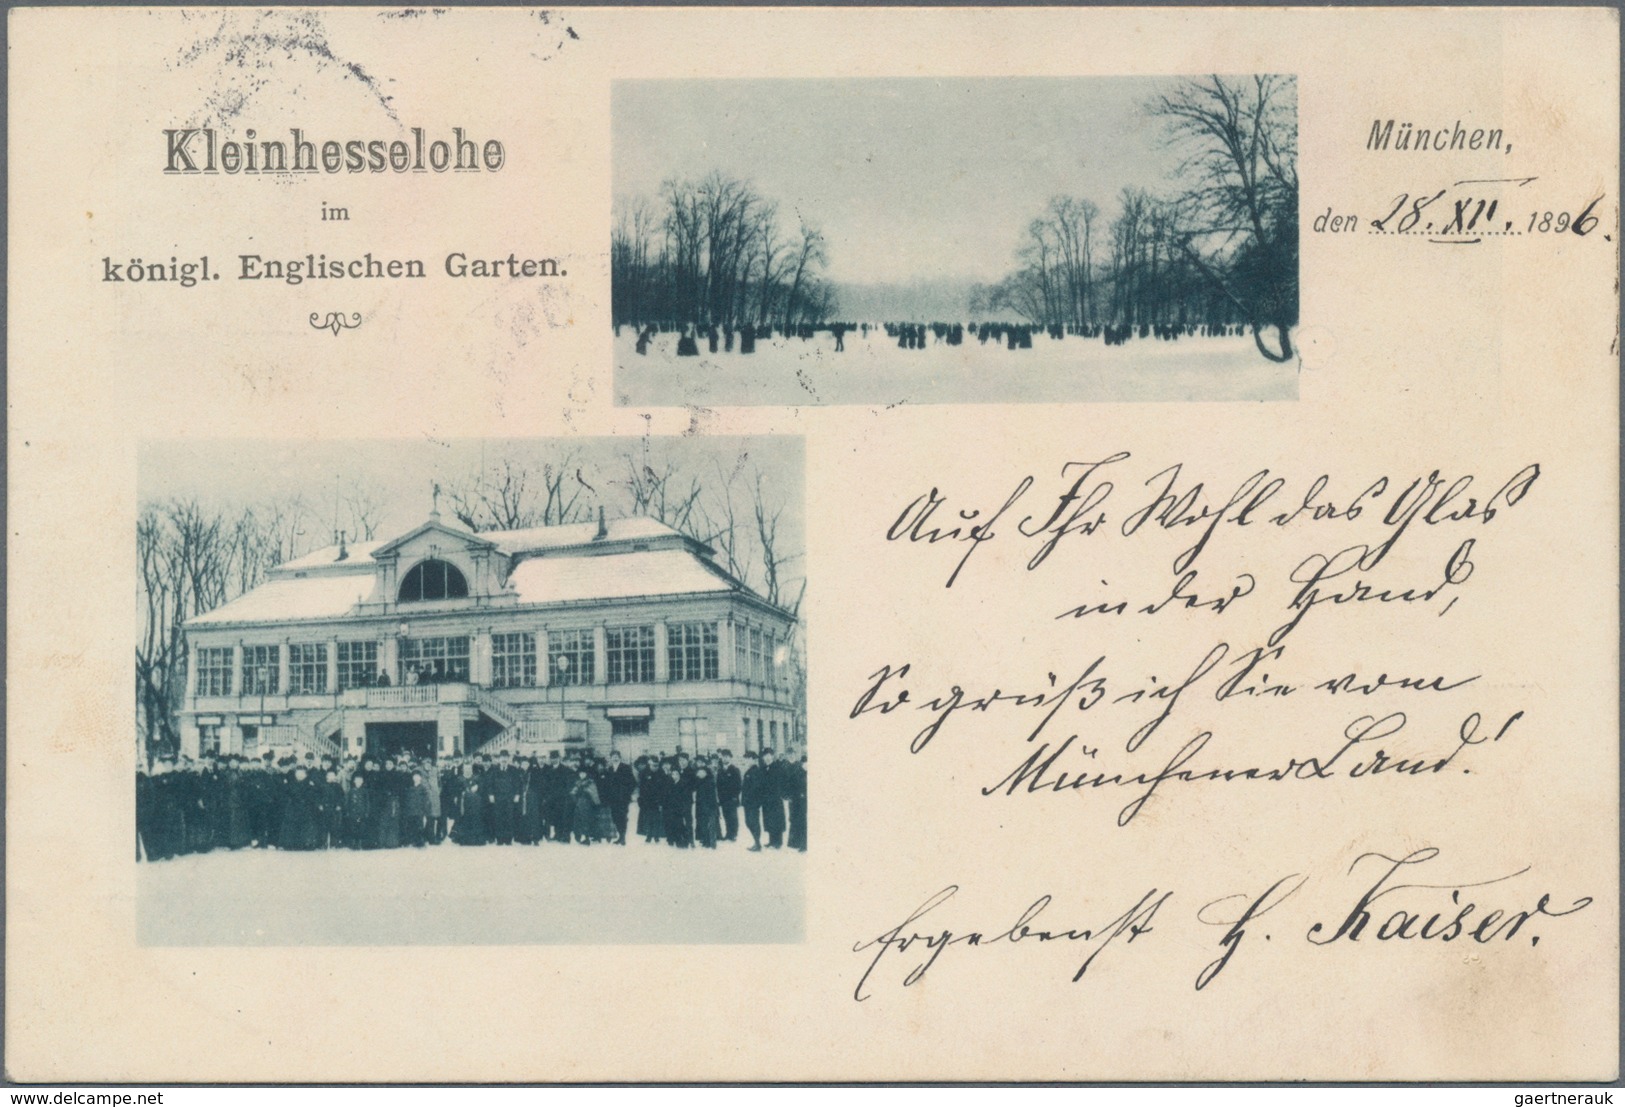 Kleinhesselohe
im
königl. Englischen Garten.
München,
den 28. XII. 1896.
Auf Ihr Wohl das Glas
in der Hand,
So grüß ich Sie vom
Münchener Land!
Ergebenst H. Kaiser.
delcampe.net
gaertnerauk